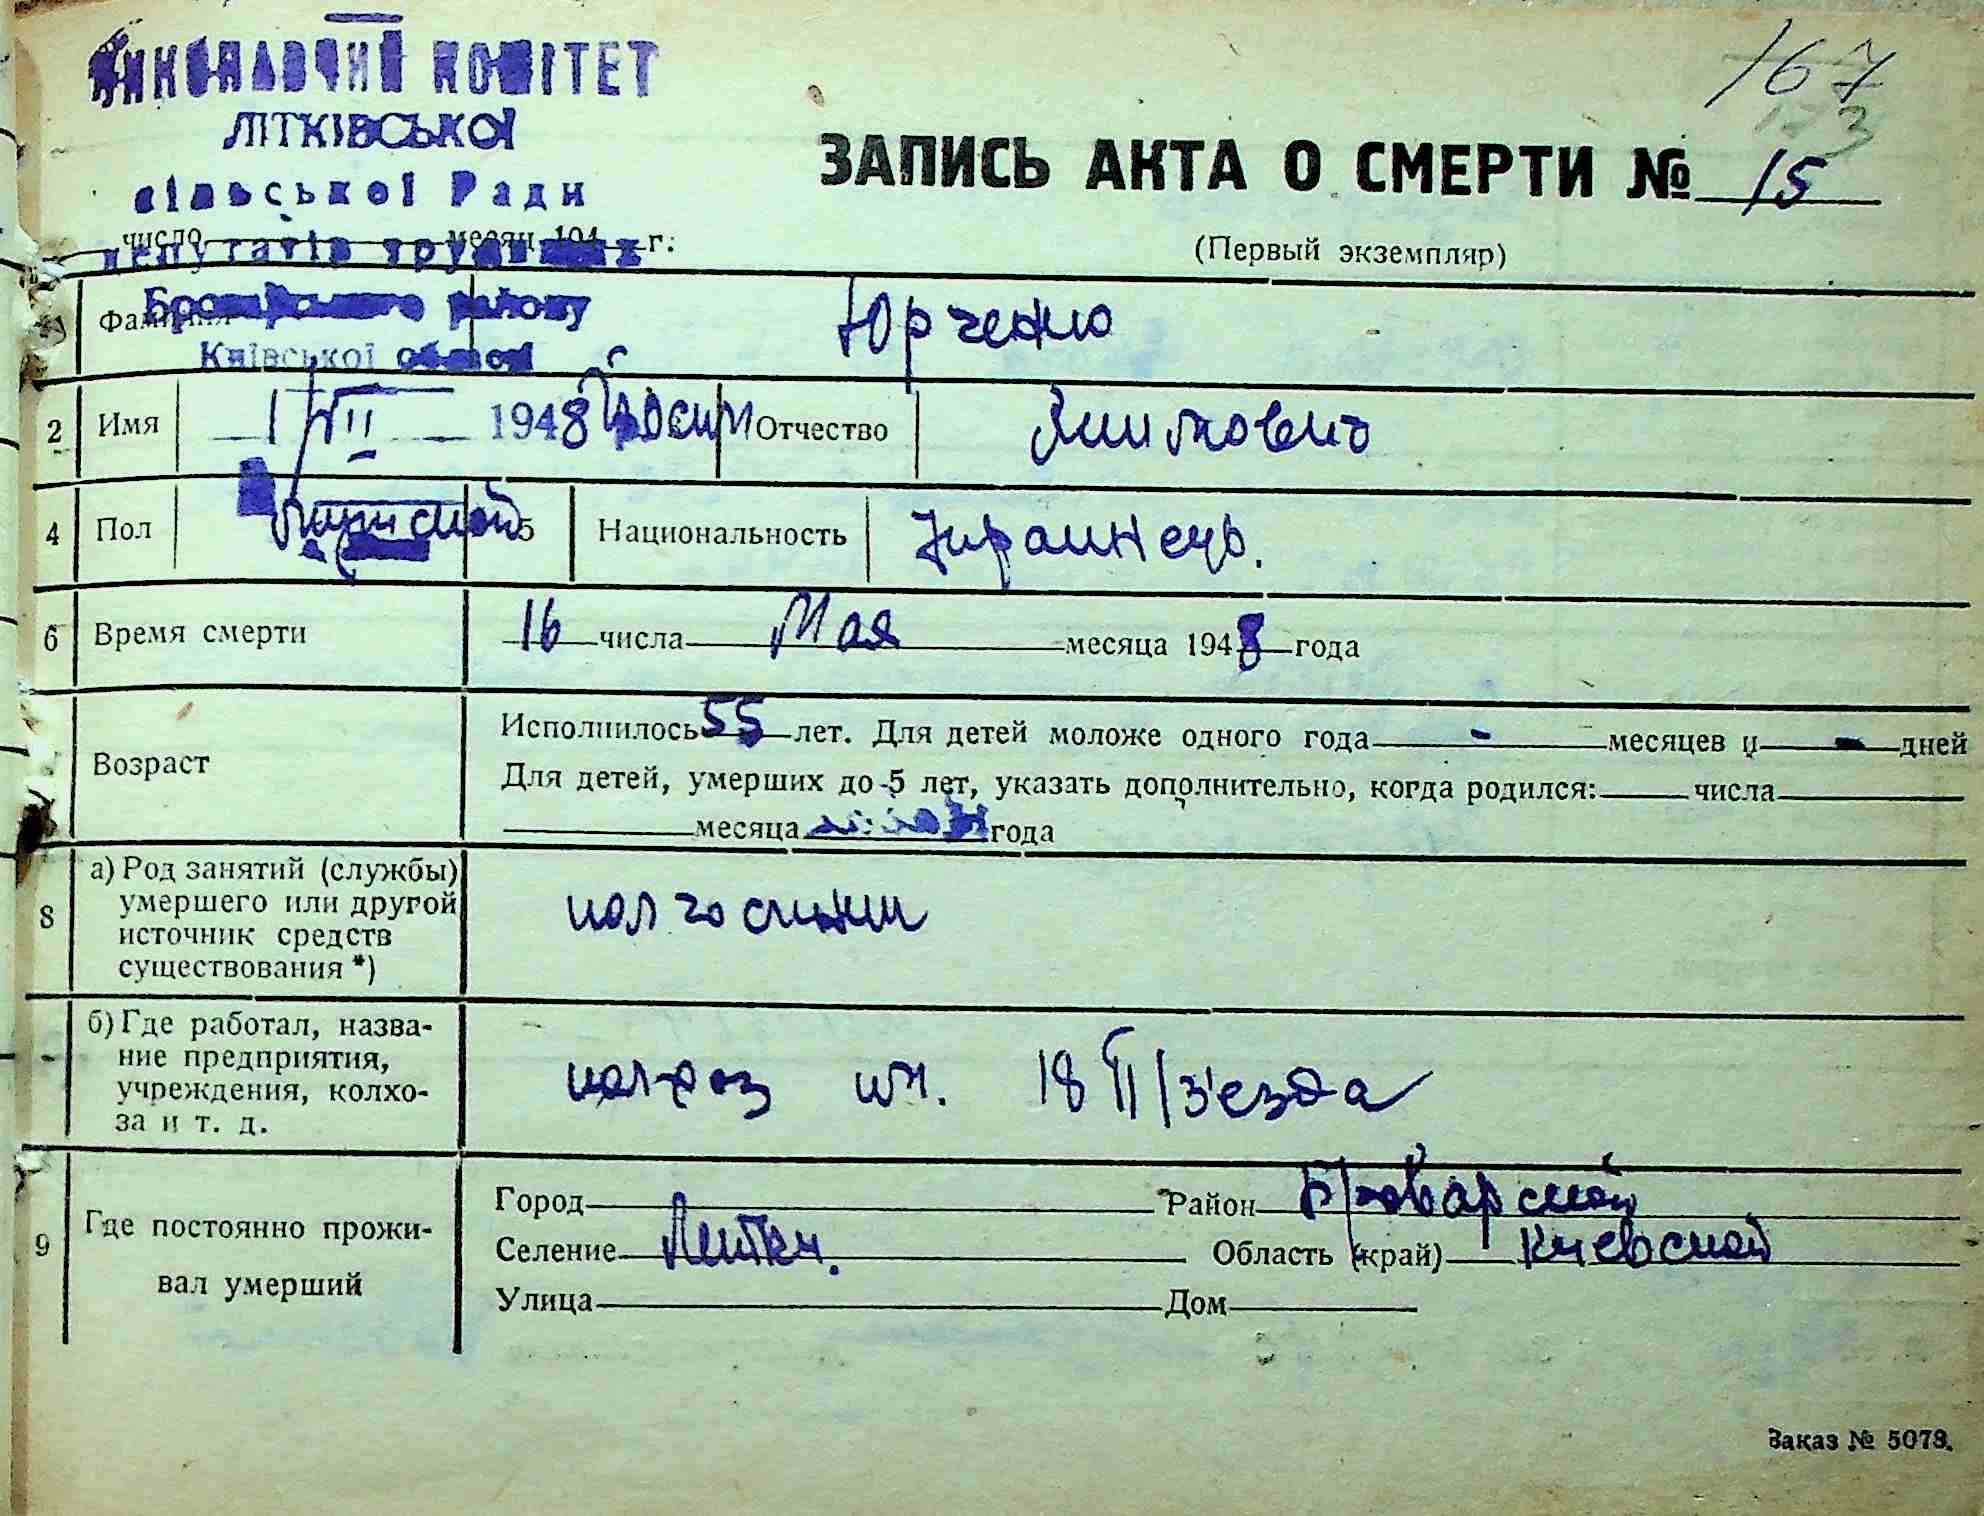 ВИКОНАВЧИЙ КОМІТЕТ
ЛІТКІВСЬКОЇ
сільської Ради
депутатів трудящих
Броварського району
Київської області
1/VII 1948
167
173
ЗАПИСЬ АКТА О СМЕРТИ № 15
(Первый экземпляр)
число месяц 194 г.
Фамилия Юрченко
2 Имя Йосип Отчество Якимович
4 Пол Мужской 5 Национальность Украинець.
6 Время смерти 16 числа Мая месяца 1948 года
Возраст
Исполнилось 55 лет. Для детей моложе одного года - месяцев и - дней
Для детей, умерших до 5 лет, указать дополнительно, когда родился: числа
месяца года
8 а) Род занятий (службы) умершего или другой источник средств существования *)
колгоспник
б) Где работал, назва-
ние предприятия,
учреждения, колхо-
за и т. д.
колхоз им. 18 П/з'езда
9 Где постоянно прожи-
вал умерший
Город Район Броварской
Селение Литки. Область (край) Киевской
Улица Дом
Заказ № 5078.